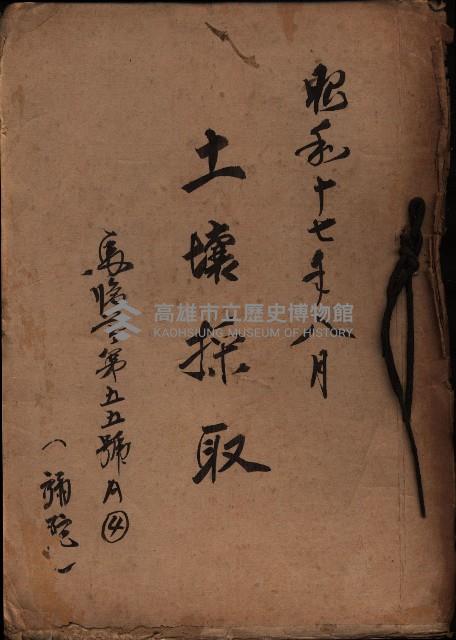 昭和十七年八月
土壤採取
馬臨工第五五號A④
(彌陀)
高雄市立歷史博物館
KAOHSIUNG MUSEUM OF HISTORY